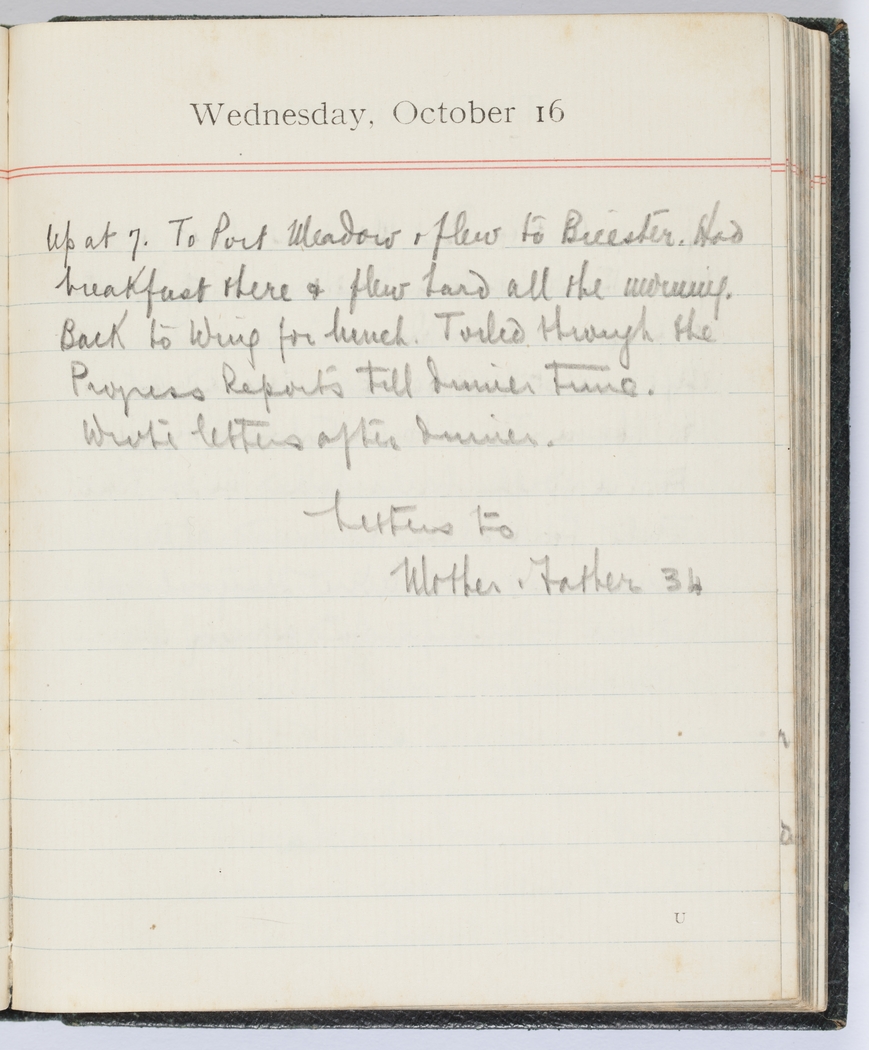 Wednesday, October 16
Up at 7. To Port Meadow & flew to Bicester. Had
breakfast there & flew hard all the morning.
Back to Wing for lunch. Toiled through the
Progress Reports till dinner time.
Wrote letters after dinner.
Letters to
Mother & Father 34
U